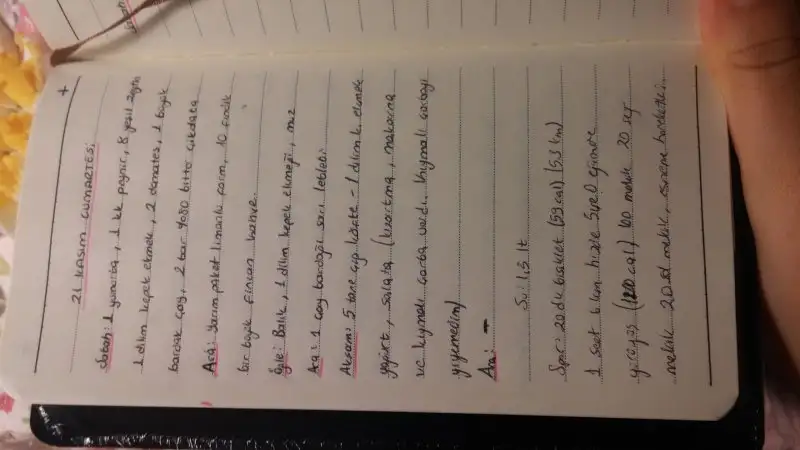 21 KASIM CUMARTESİ;
Sabah: 1 yumurta, 1 kk peynir, 8 yeşil zeytin
1 dilim kepek ekmek, 2 domates, 1 büyük
bardak çay, 2 bar %80 bitter çikolata
Ara: Yarım paket limarlı form, 10 fındık
bir büyük fincan kahve.
Öğle: Balık, 1 dilim kepek ekmeği, muz
Ara: 1 çay bardağı sarı leblebi
Akşam: 5 tane çöp köfte - 1 dilim k. ekmek
yoğurt, salata (kızartma, makarna
ve kıymalı çorba vardı. Kıymalı çorbayı
yiyemedim)
Ara: -
Su: 1,5 lt
Spor: 20 dk bisiklet (59 cal) (5.3 km)
1 saat 6 km hızla 5 eğimde
yürüyüş (cal) 100 mekik 20 ters
mekik 20 mekik, esneme hareketleri.